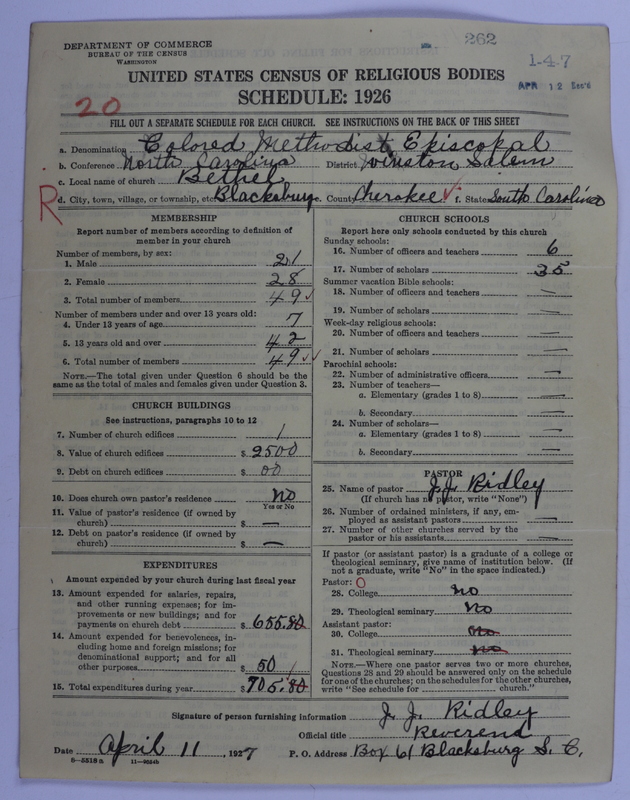 262
1-4-7
APR 12
DEPARTMENT OF COMMERCE
BUREAU OF THE CENSUS
WASHINGTON
UNITED STATES CENSUS OF RELIGIOUS BODIES
SCHEDULE: 1926
20
FILL OUT A SEPARATE SCHEDULE FOR EACH CHURCH. SEE INSTRUCTIONS ON THE BACK OF THIS SHEET
a. Denomination Colored Methodist Episcopal
b. Conference North Carolina District Winston Salem
c. Local name of church Bethel
R d. City, town, village, or township, etc. Blacksburg e. County Cherokee ✓ f. State South Carolina
MEMBERSHIP
Report number of members according to definition of
member in your church
Number of members, by sex:
1. Male 21
2. Female 28
3. Total number of members 49 ✓
Number of members under and over 13 years old:
4. Under 13 years of age 7
5. 13 years old and over 42
6. Total number of members 49 ✓✓
NOTE.—The total given under Question 6 should be the
same as the total of males and females given under Question 3.
CHURCH BUILDINGS
See instructions, paragraphs 10 to 12
7. Number of church edifices 1
8. Value of church edifices $ 2500
9. Debt on church edifices $ 00
10. Does church own pastor's residence no
Yes or No
11. Value of pastor's residence (if owned by
church) $ —
12. Debt on pastor's residence (if owned by
church) $ —
EXPENDITURES
Amount expended by your church during last fiscal year
13. Amount expended for salaries, repairs,
and other running expenses; for im-
provements or new buildings; and for
payments on church debt $ 655.80
14. Amount expended for benevolences, in-
cluding home and foreign missions; for
denominational support; and for all
other purposes $ 50
15. Total expenditures during year $ 705.80
CHURCH SCHOOLS
Report here only schools conducted by this church
Sunday schools:
16. Number of officers and teachers 6
17. Number of scholars 35
Summer vacation Bible schools:
18. Number of officers and teachers —
19. Number of scholars —
Week-day religious schools:
20. Number of officers and teachers —
21. Number of scholars —
Parochial schools:
22. Number of administrative officers —
23. Number of teachers—
a. Elementary (grades 1 to 8) —
b. Secondary —
24. Number of scholars—
a. Elementary (grades 1 to 8) —
b. Secondary —
PASTOR
25. Name of pastor J. J. Ridley
(If church has no pastor, write "None")
26. Number of ordained ministers, if any, em-
ployed as assistant pastors —
27. Number of other churches served by the
pastor or his assistants —
If pastor (or assistant pastor) is a graduate of a college or
theological seminary, give name of institution below. (If
not a graduate, write "No" in the space indicated.)
Pastor: O
28. College no
29. Theological seminary no
Assistant pastor:
30. College no
31. Theological seminary no
NOTE.—Where one pastor serves two or more churches,
Questions 28 and 29 should be answered only on the schedule
for one of the churches; on the schedules for the other churches,
write "See schedule for church."
Signature of person furnishing information J. J. Ridley
Official title Reverend
Date April 11, 1927 P. O. Address Box 61 Blacksburg S. C.
8-5518 a 11-9264b